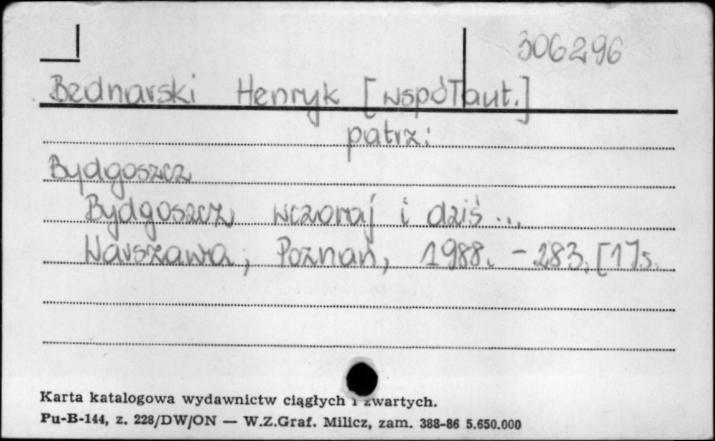 306296
Bednarski Henryk [współaut.]
patrz:
Bydgoszcz
Bydgoszcz wczoraj i dziś...
Warszawa; Poznań, 1988. - 283, [1] s.
Karta katalogowa wydawnictw ciągłych i zwartych.
Pu-B-144, z. 228/DW/ON — W.Z.Graf. Milicz, zam. 388-86 5.650.000